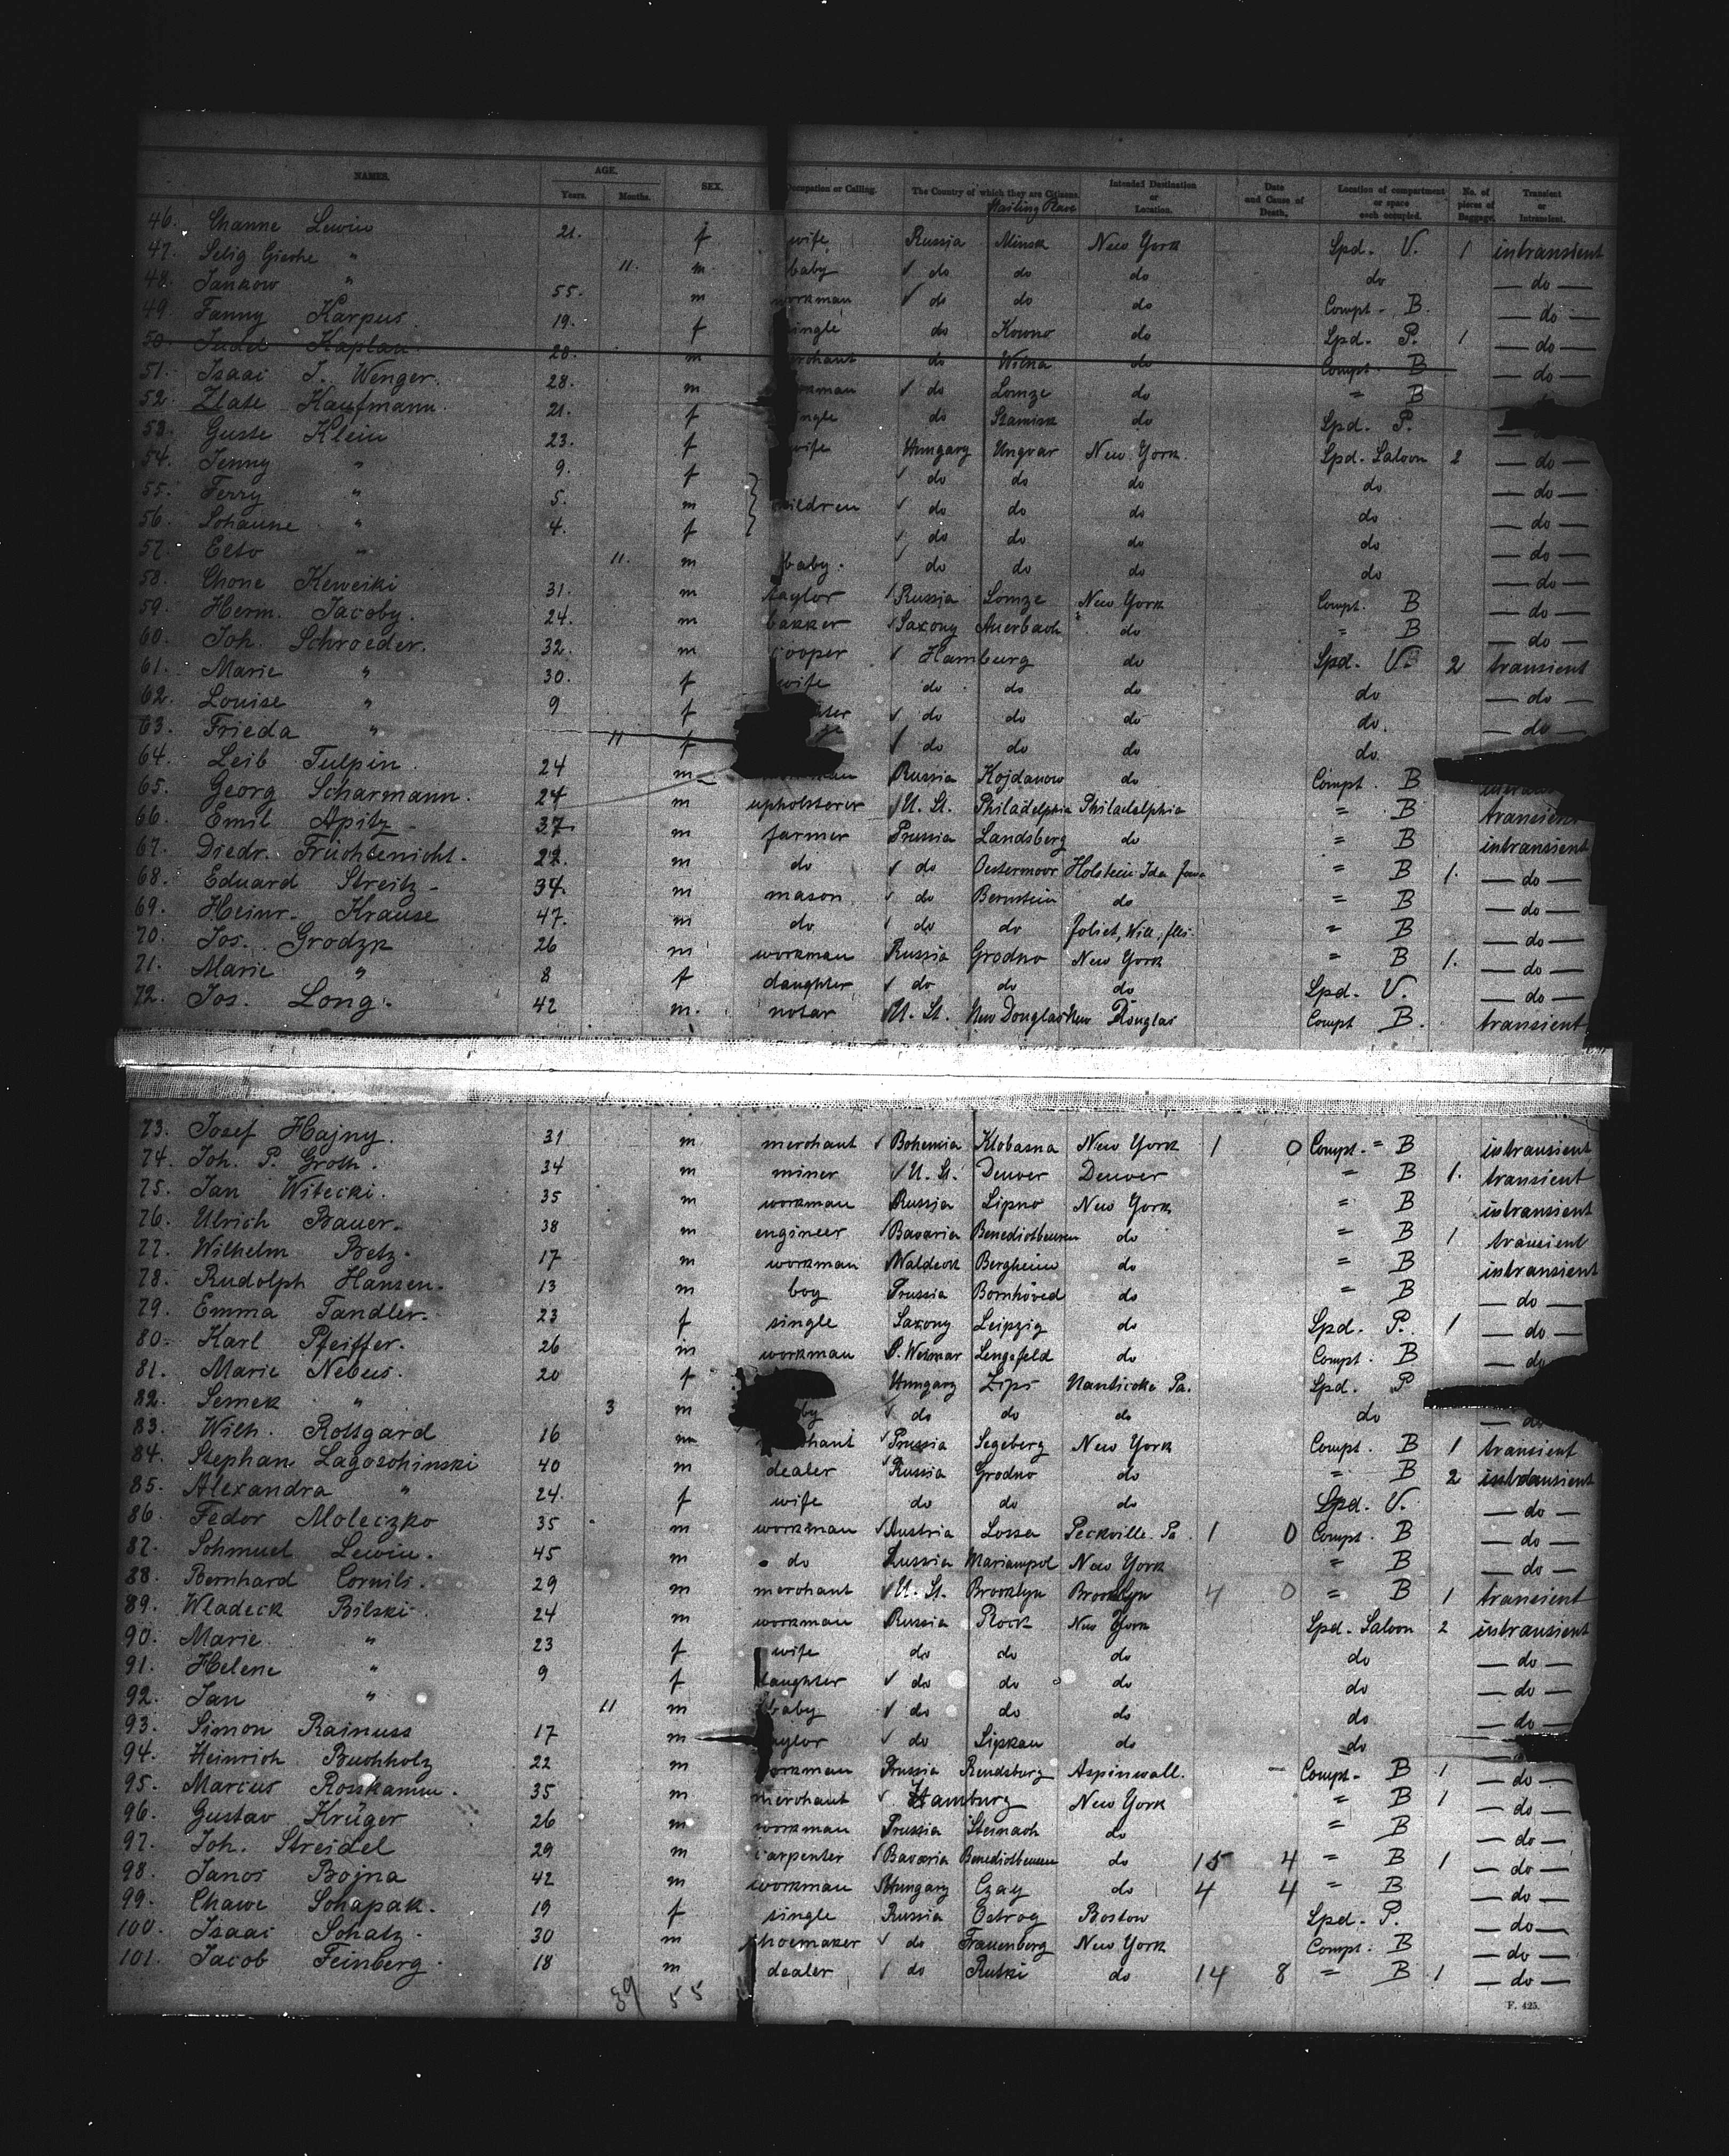 NAMES. AGE. Years. Months. SEX. Occupation or Calling. The Country of which they are Citizens Intended Destination or Location. Date and Cause of Death. Location of compartment or space each occupied. No. of pieces of Baggage. Transient or Intransient.
46. Channe Lewin 21. f wife Russia Minsk New York Spd. V. 1 intransient
47. Selig " 11. m baby do do do do — do —
48. Jankow " 55. m workman do do do Compt. B. — do —
49. Fanny Karpus 19. f single do Kowno do Spd. P. 1 — do —
50. Judel Kaplan 28. m merchant do Wilna do Compt. B — do —
51. Isaac J. Wenger. 28. m workman do Lomze do " B
52. Zlate Kaufmann. 21. f single do do Spd. P.
53. Guste Klein 23. f wife Hungary Ungvar New York. Spd. Saloon 2 — do —
54. Jenny " 9. f children do do do do — do —
55. Ferry " 5. m do do do do — do —
56. Johanne " 4. f do do do do — do —
57. " 11. m baby. do do do do — do —
58. Chone Keweski 31. m taylor Russia Lomze New York Compt. B — do —
59. Herm. Jacoby. 24. m bakker Saxony Auerbach do " B — do —
60. Joh. Schroeder. 32. m cooper Hamburg do Spd. V. 2 transient
61. Marie " 30. f wife do do do do — do —
62. Louise " 9 f do do do do. — do —
63. Frieda " 11 f do do do do
64. Leib Tulpin. 24 m Russia Kojdanow do Compt. B
65. Georg Scharmann. 24 m upholsterer U. St. Philadelphia Philadelphia " B transient
66. Emil Apitz 37 m farmer Prussia Landsberg do " B intransient
67. Diedr. Früchtenicht. 22. m do do Oestermoor Holstein Ida Jowa " B 1. — do —
68. Eduard Streitz 34. m mason do Bernstein do " B — do —
69. Heinr. Krause 47. m do do do Joliet, Will. Ills. " B — do —
70. Jos. Grodzk 26 m workman Russia Grodno New York " B 1. — do —
71. Marie " 8 f daughter do do do Spd. V. — do —
72. Jos. Long. 42 m. notar U. St. New Douglas New Douglas Compt B. transient
73. Josef Hajny. 31 m merchant Bohemia Klobasna New York 1 0 Compt. " B intransient
74. Joh. P. Groth. 34 m miner U. St. Denver Denver " B 1. transient
75. Jan Witecki. 35 m workman Russia Lipno New York " B intransient
76. Ulrich Bauer. 38 m engineer Bavaria Benedictbeuren do " B 1 transient
77. Wilhelm Betz. 17 m workman Waldeck Bergheim do " B intransient
78. Rudolph Hansen. 13 m boy Prussia Bornhöved do " B — do —
79. Emma Tandler. 23 f single Saxony Leipzig do Spd. P. 1 — do —
80. Karl Pfeiffer. 26 m workman S. Weimar Lengefeld do Compt. B — do
81. Marie Nebus. 20 f Hungary Zips Nanticoke Pa. Spd. P
82. Semek " 3 m baby do do do do — do
83. Wilh. Rottgard 16 m merchant Prussia Segeberg New York Compt. B 1 transient
84. Stephan Lagoschinski 40 m dealer Russia Grodno do " B 2 intransient
85. Alexandra " 24. f wife do do do Spd. V. — do —
86. Fedor Moleczko 35 m workman Austria Lossa Peckville. Pa. 1 0 Compt. B — do —
87. Schmuel Lewin. 45 m do Russia Mariampol New York " B — do —
88. Bernhard Cornils. 29 m merchant U. St. Brooklyn Brooklyn 4 0 " B 1 transient
89. Wladeck Bilski. 24 m workman Russia Plock New York Spd. Saloon 2 intransient
90. Marie " 23 f wife do do do do — do —
91. Helene " 9 f daughter do do do do — do —
92. Jan " 11 m baby do do do do — do —
93. Simon Rainuss 17 m taylor do Lipkau do do
94. Heinrich Buchholz 22 m workman Prussia Rendsburg Aspinwall. Compt. B 1 — do —
95. Marcus Rosskamm. 35 m merchant Hamburg New York " B 1 — do —
96. Gustav Krüger 26 m workman Prussia Sternach do " B — do —
97. Joh. Streidel 29 m carpenter Bavaria Benedictbeuren do 15 4 " B 1 — do —
98. Janos Bojna 42 m workman Hungary Czay do 4 4 " B — do —
99. Chawe Schapak. 19 f single Russia Ostrog Boston Spd. P. — do —
100. Isaac Schatz. 30 m shoemaker do Frauenberg New York Compt. B — do —
101. Jacob Feinberg. 18 m dealer do Rutki do 14 8 " B 1 — do —
39 55
F. 425.